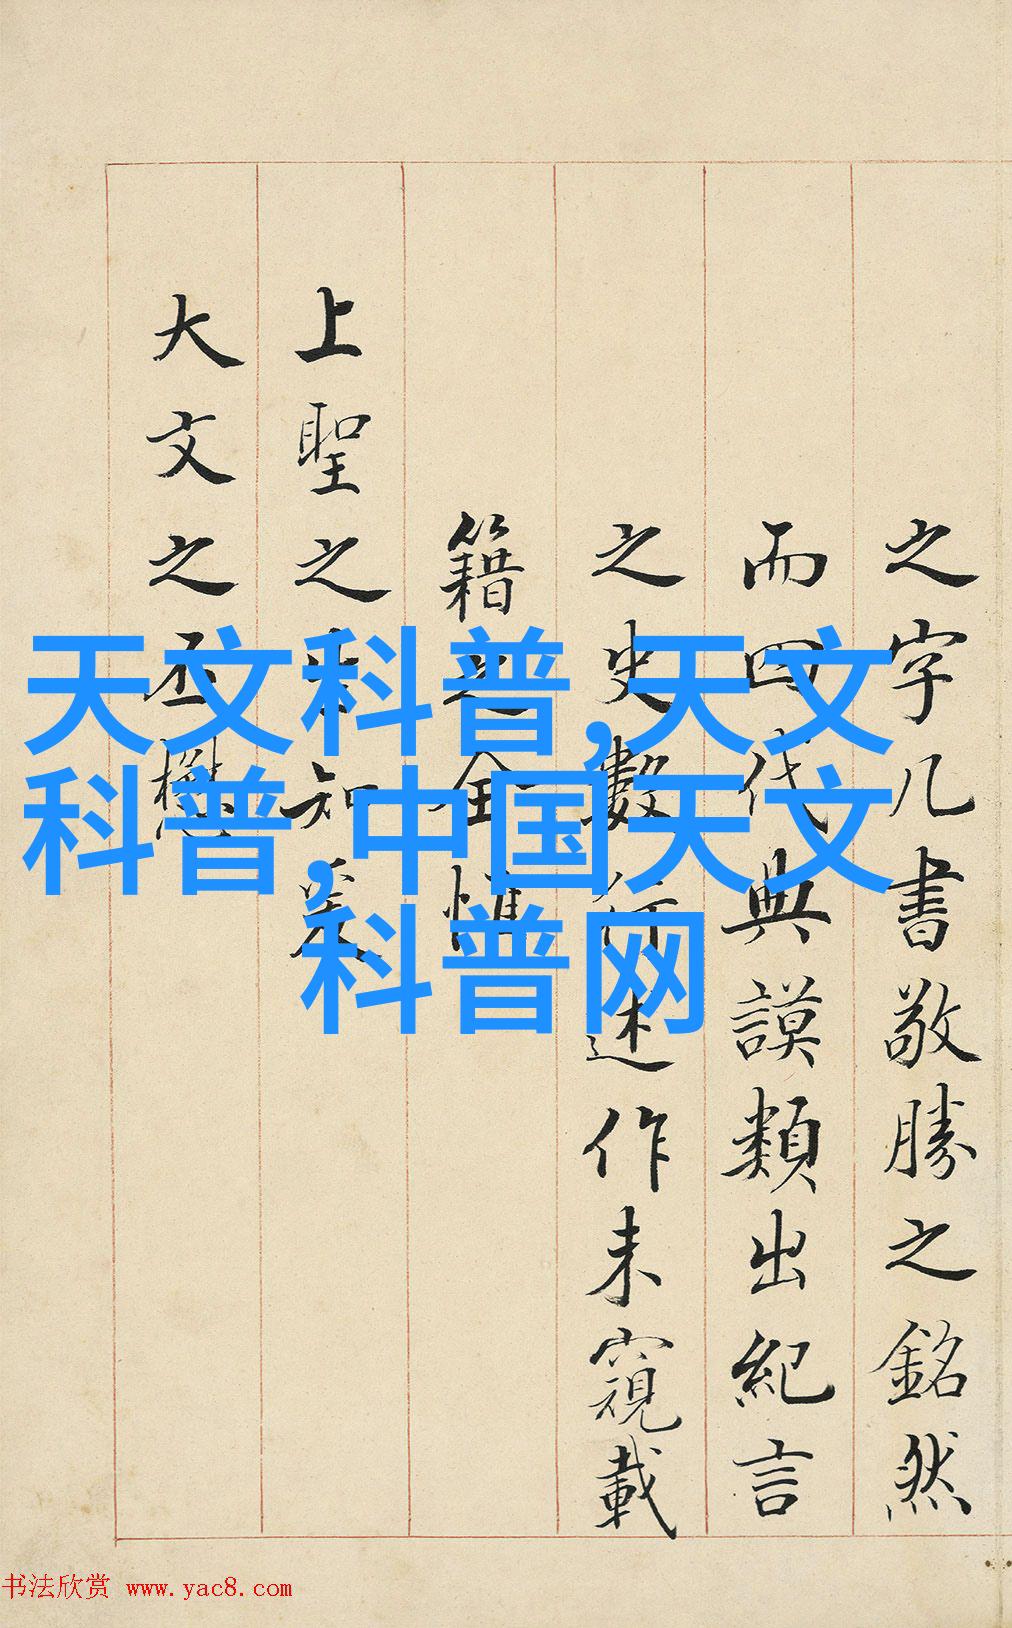 之字几書敬勝之銘然
而四代典謨類出紀言
之史數行述作未窺載
籍之全惟
上聖之未知爰
大文之丕懋
天文科普,天文
科普,中国天文
科普网
书法欣赏 www.yac8.com